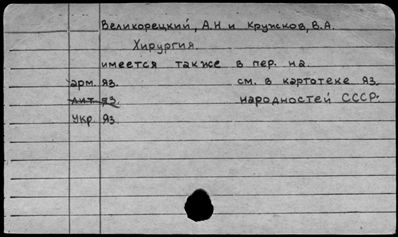 Великорецкий, А.Н и Кружков, В.А.
Хирургия.
имеется также в пер. на.
арм. яз. см. в картотеке яз.
лит яз. народностей СССР.
укр яз